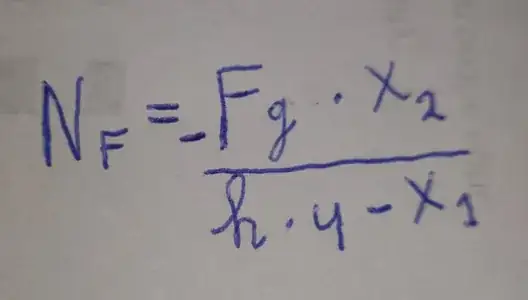 N_F = - F_g · x_2
h · y - x_1